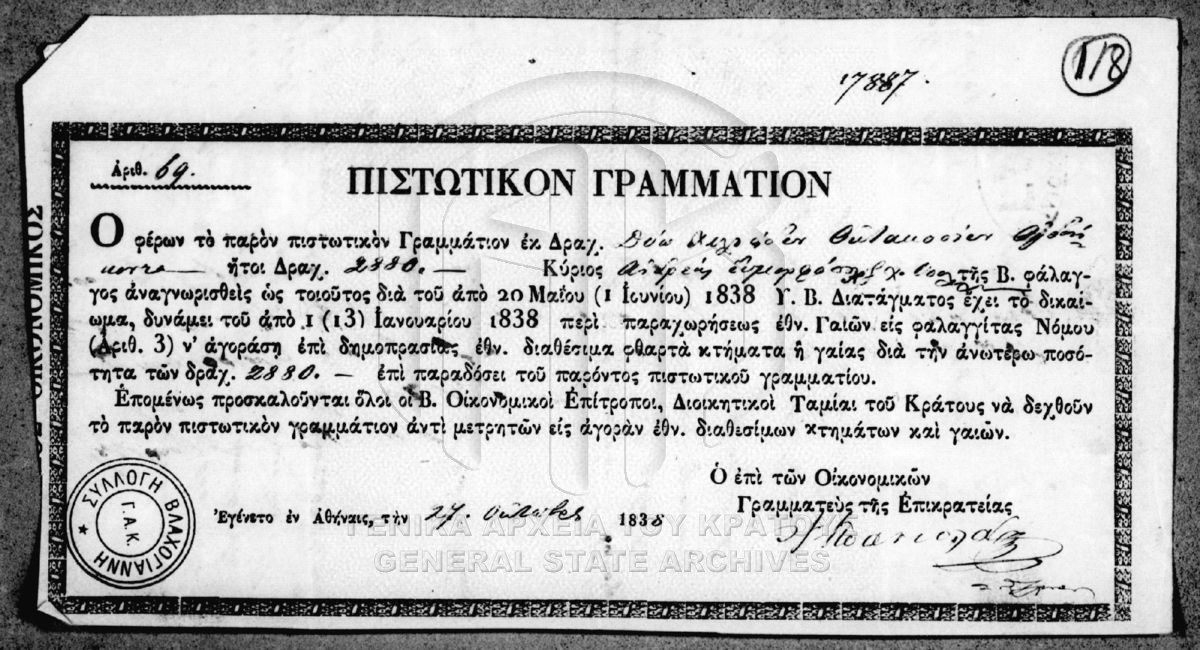 118
17887.
Ἀριθ. 69.
ΠΙΣΤΩΤΙΚΟΝ ΓΡΑΜΜΑΤΙΟΝ
Ο φέρων τὸ παρὸν πιστωτικὸν Γραμμάτιον ἐκ Δραχ. Δύο χιλιάδων Ὀκτακοσίων Ὀγδοή
κοντα — ἤτοι Δραχ. 2880. — Κύριος Ἀνδρέας τῆς Β. φάλαγ-
γος ἀναγνωρισθεὶς ὡς τοιοῦτος διὰ τοῦ ἀπὸ 20 Μαΐου (1 Ἰουνίου) 1838 Υ. Β. Διατάγματος ἔχει τὸ δικαί-
ωμα, δυνάμει τοῦ ἀπὸ 1 (13) Ἰανουαρίου 1838 περὶ παραχωρήσεως ἐθν. Γαιῶν εἰς φαλαγγίτας Νόμου
(Ἀριθ. 3) ν' ἀγοράσῃ ἐπὶ δημοπρασίας ἐθν. διαθέσιμα φθαρτὰ κτήματα ἢ γαίας διὰ τὴν ἀνωτέρω ποσό-
τητα τῶν δραχ. 2880. — ἐπὶ παραδόσει τοῦ παρόντος πιστωτικοῦ γραμματίου.
Ἑπομένως προσκαλοῦνται ὅλοι οἱ Β. Οἰκονομικοὶ Ἐπίτροποι, Διοικητικοὶ Ταμίαι τοῦ Κράτους νὰ δεχθοῦν
τὸ παρὸν πιστωτικὸν γραμμάτιον ἀντὶ μετρητῶν εἰς ἀγορὰν ἐθν. διαθεσίμων κτημάτων καὶ γαιῶν.
Ὁ ἐπὶ τῶν Οἰκονομικῶν
Γραμματεὺς τῆς Ἐπικρατείας
Ἐγένετο ἐν Ἀθήναις, τὴν 27. 1838
ΟΙΚΟΝΟΜΙΚΟΣ
ΣΥΛΛΟΓΗ ΒΛΑΧΟΓΙΑΝΝΗ
Γ.Α.Κ.
ΓΕΝΙΚΑ ΑΡΧΕΙΑ ΤΟΥ ΚΡΑΤΟΥΣ
GENERAL STATE ARCHIVES